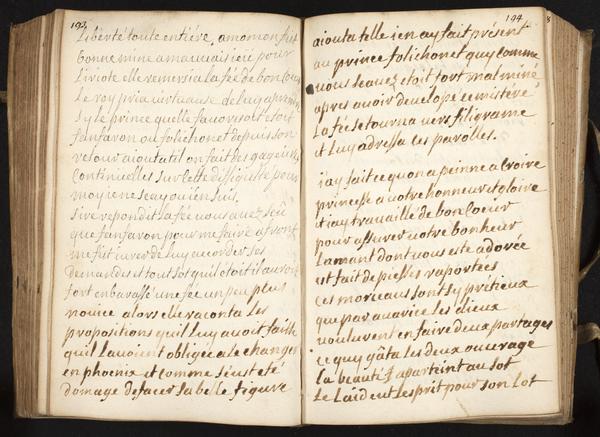 193
Liberté toute entiére, a mom on fit
bonne mine a mauuais ieu pour
liriote elle remersia la fée de bon coeur
le roy pria uertuause de luy aprendre
sy le prince quelle fauorisoit etoit
fanfaron ou folichonet depuis son
retour aiouta til on fait des gageures
Continuelles sur cette dispute pour
moy ie ne scay ou i'en suis.
sire repondit la fée uous auez sceü
que fanfaron pour me faire afront
me fit iurer de luy acorder ses
demandes et tout sot quil etoit il auroit
fort enbarassé une fée un peu plus
nouice alors elle raconta les
propositions quil luy auoit faits
quil lauoient obligée a le changer
en phoenix et comme s'eust eté
domage defacer sa belle figure
194
aiouta telle ien ay fait présent
au prince folichonet quy comme
uous scauez etoit fort mal miné
apres auoir deuelopé ce mistére
La fée se tourna uers filigrame
et luy adressa ces parolles.
i'ay fait ce quon a peinne a croire
princesse a uotre honneur et gloire
et iay trauaille de bon coeur
pour assurer uotre bonheur
Lamant dont uous este adorée
est fait de piesses raportées
ces morceaux sont sy prétieux
que par auarice les dieux
uoulurent en faire deux partages
ce quy gâta les deux ouurage
la beauté apartient au sot
Le laid eut lesprit pour son lot